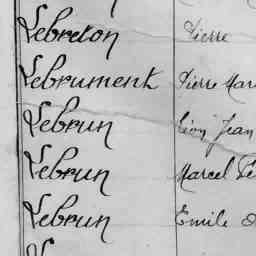 Lebreton Pierre
Lebrument Pierre Mar
Lebrun Léon Jean
Lebrun Marcel
Lebrun Emile